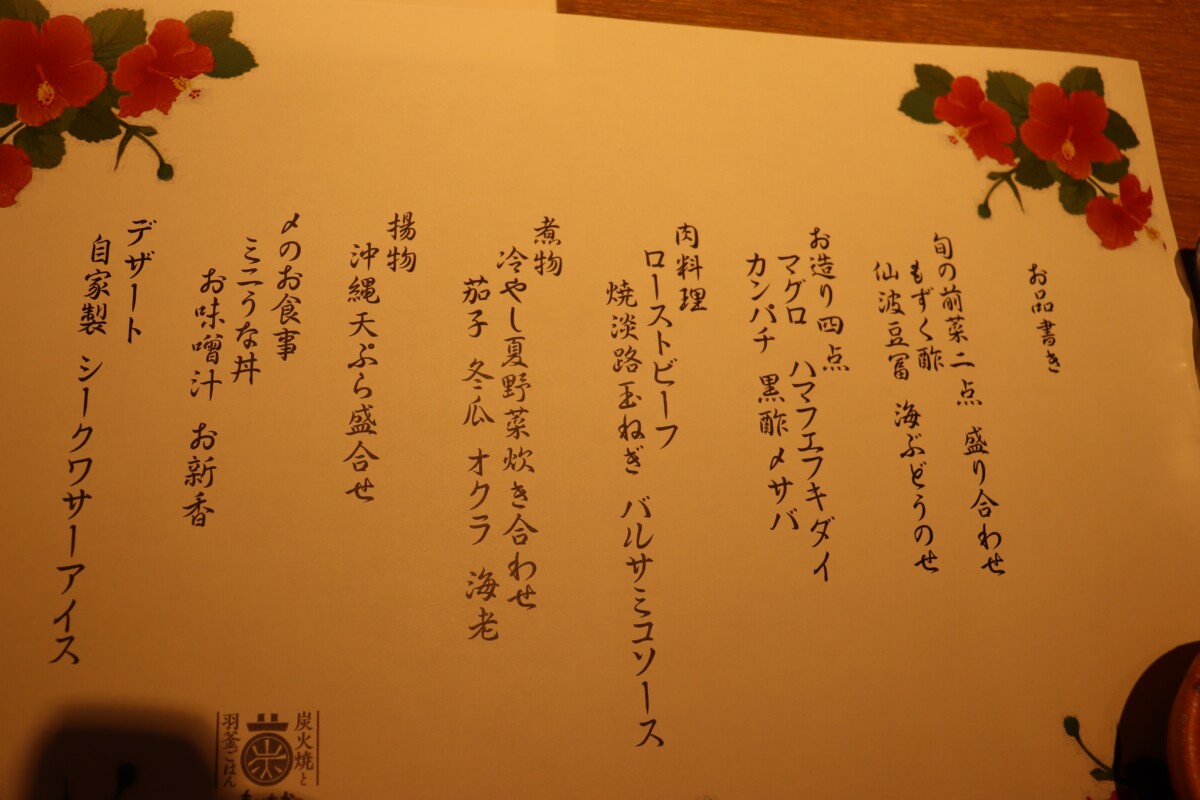 お品書き
旬の前菜二点 盛り合わせ
もずく酢
仙波豆冨 海ぶどうのせ
お造り四点
マグロ ハマフエフキダイ
カンパチ 黒酢〆サバ
肉料理
ローストビーフ
焼淡路玉ねぎ バルサミコソース
煮物
冷やし夏野菜炊き合わせ
茄子 冬瓜 オクラ 海老
揚物
沖縄天ぷら盛合せ
〆のお食事
ミニうな丼
お味噌汁 お新香
デザート
自家製 シークワサーアイス
炭火焼と
羽釜ごはん